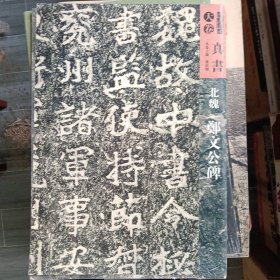 魏故中書令秘
書監使持節督
兗州諸軍事安
天卷
真書
北魏
鄭文公碑